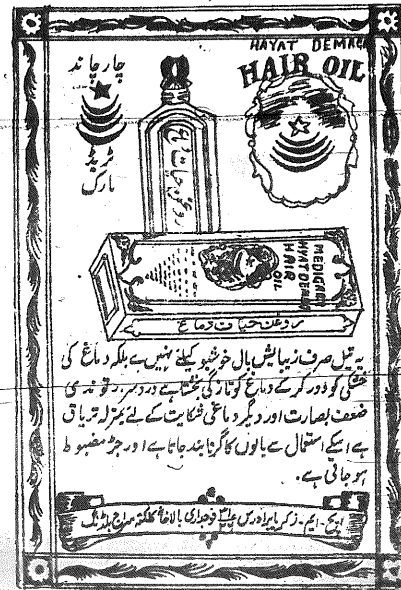 HAYAT DEMAGH
HAIR OIL
چار چاند
ٹریڈ
مارک
روغن حیات دماغ
MEDICATED
HYAT DEMAGH
HAIR
OIL
روغن حیات دماغ
یہ تیل صرف زیبایش بال خوشبو کیلئے نہیں ہے بلکہ دماغ کی
خشکی کو دور کر کے دماغ کو تازگی بخشتا ہے درد سر رتوندی
ضعف بصارت اور دیگر دماغی شکایت کے لئے بمنزلہ تریاق
ہے اسکے استعمال سے بالوں کا گرنا بند ہو جاتا ہے اور جڑ مضبوط
ہو جاتی ہے۔
ایچ۔ایم۔زکریا برادرس فوجداری بالاخانہ کلکتہ معراج بلڈنگ